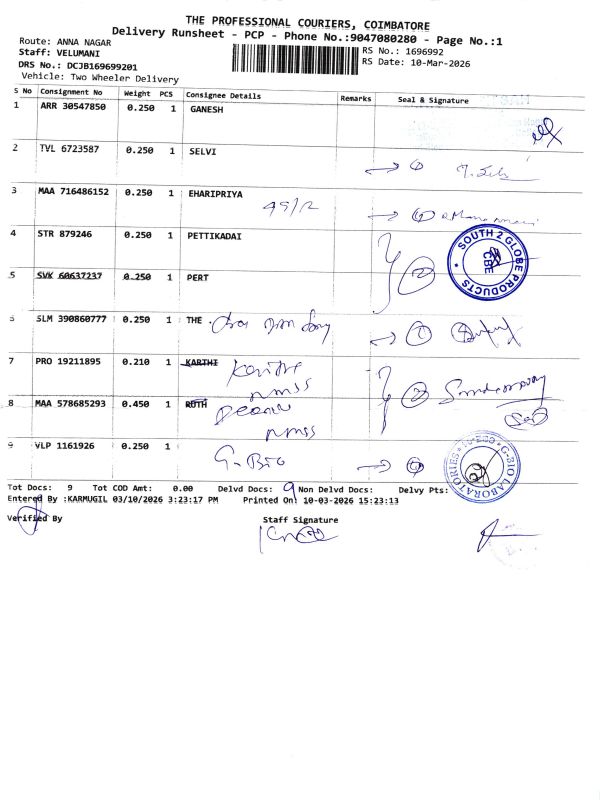 THE PROFESSIONAL COURIERS, COIMBATORE
Delivery Runsheet - PCP - Phone No.:9047080280 - Page No.:1
Route: ANNA NAGAR
Staff: VELUMANI
DRS No.: DCJB169699201
Vehicle: Two Wheeler Delivery
RS No.: 1696992
RS Date: 10-Mar-2026
S No Consignment No Weight PCS Consignee Details Remarks Seal & Signature
1 ARR 30547850 0.250 1 GANESH
2 TVL 6723587 0.250 1 SELVI
3 MAA 716486152 0.250 1 EHARIPRIYA
45/2
4 STR 879246 0.250 1 PETTIKADAI
2
SOUTH 2 GLOBE PRODUCTS
CBE
5 SVK 60637237 0.250 1 PERT
6 SLM 390860777 0.250 1 THE
1
7 PRO 19211895 0.210 1 KARTHI
nmss
2
8 MAA 578685293 0.450 1 RUTH
nmss
9 VLP 1161926 0.250 1
G-Bio
G-BIO LABORATORIES
Tot Docs: 9 Tot COD Amt: 0.00 Delvd Docs: 9 Non Delvd Docs: Delvy Pts:
Entered By :KARMUGIL 03/10/2026 3:23:17 PM Printed On: 10-03-2026 15:23:13
Verified By Staff Signature